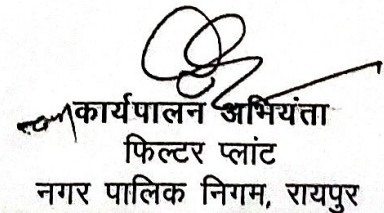 कार्यपालन अभियंता
फिल्टर प्लांट
नगर पालिक निगम, रायपुर